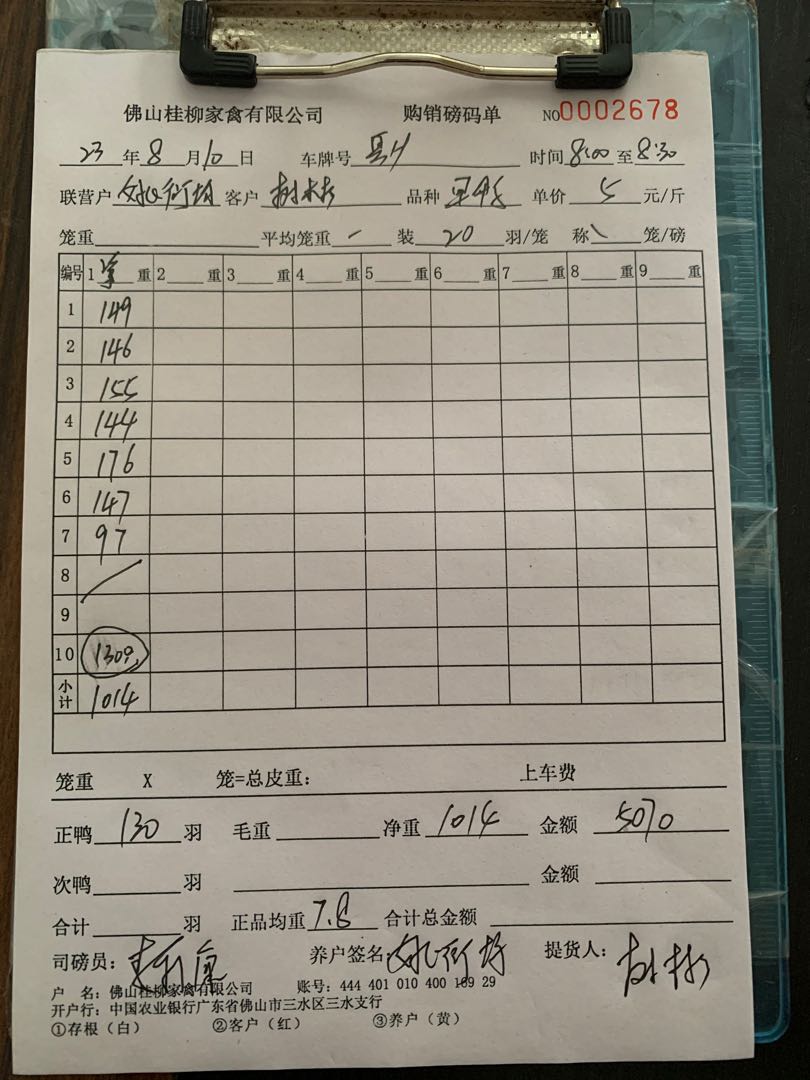 佛山桂柳家禽有限公司 购销磅码单 NO0002678
23 年 8 月 10 日 车牌号 时间 8:00 至 8:30
联营户 客户 树彬 品种 单价 5 元/斤
笼重 平均笼重 - 装 20 羽/笼 称 \ 笼/磅
编号 1 单 重 2 重 3 重 4 重 5 重 6 重 7 重 8 重 9 重
1 149
2 146
3 155
4 144
5 176
6 147
7 97
8 /
9
10 130羽
小计 1014
笼重 X 笼=总皮重: 上车费
正鸭 130 羽 毛重 净重 1014 金额 5070
次鸭 羽 金额
合计 羽 正品均重 7.8 合计总金额
司磅员: 养户签名 提货人: 树彬
户 名: 佛山桂柳家禽有限公司 账号: 444 401 010 400 169 29
开户行: 中国农业银行广东省佛山市三水区三水支行
①存根（白） ②客户（红） ③养户（黄）